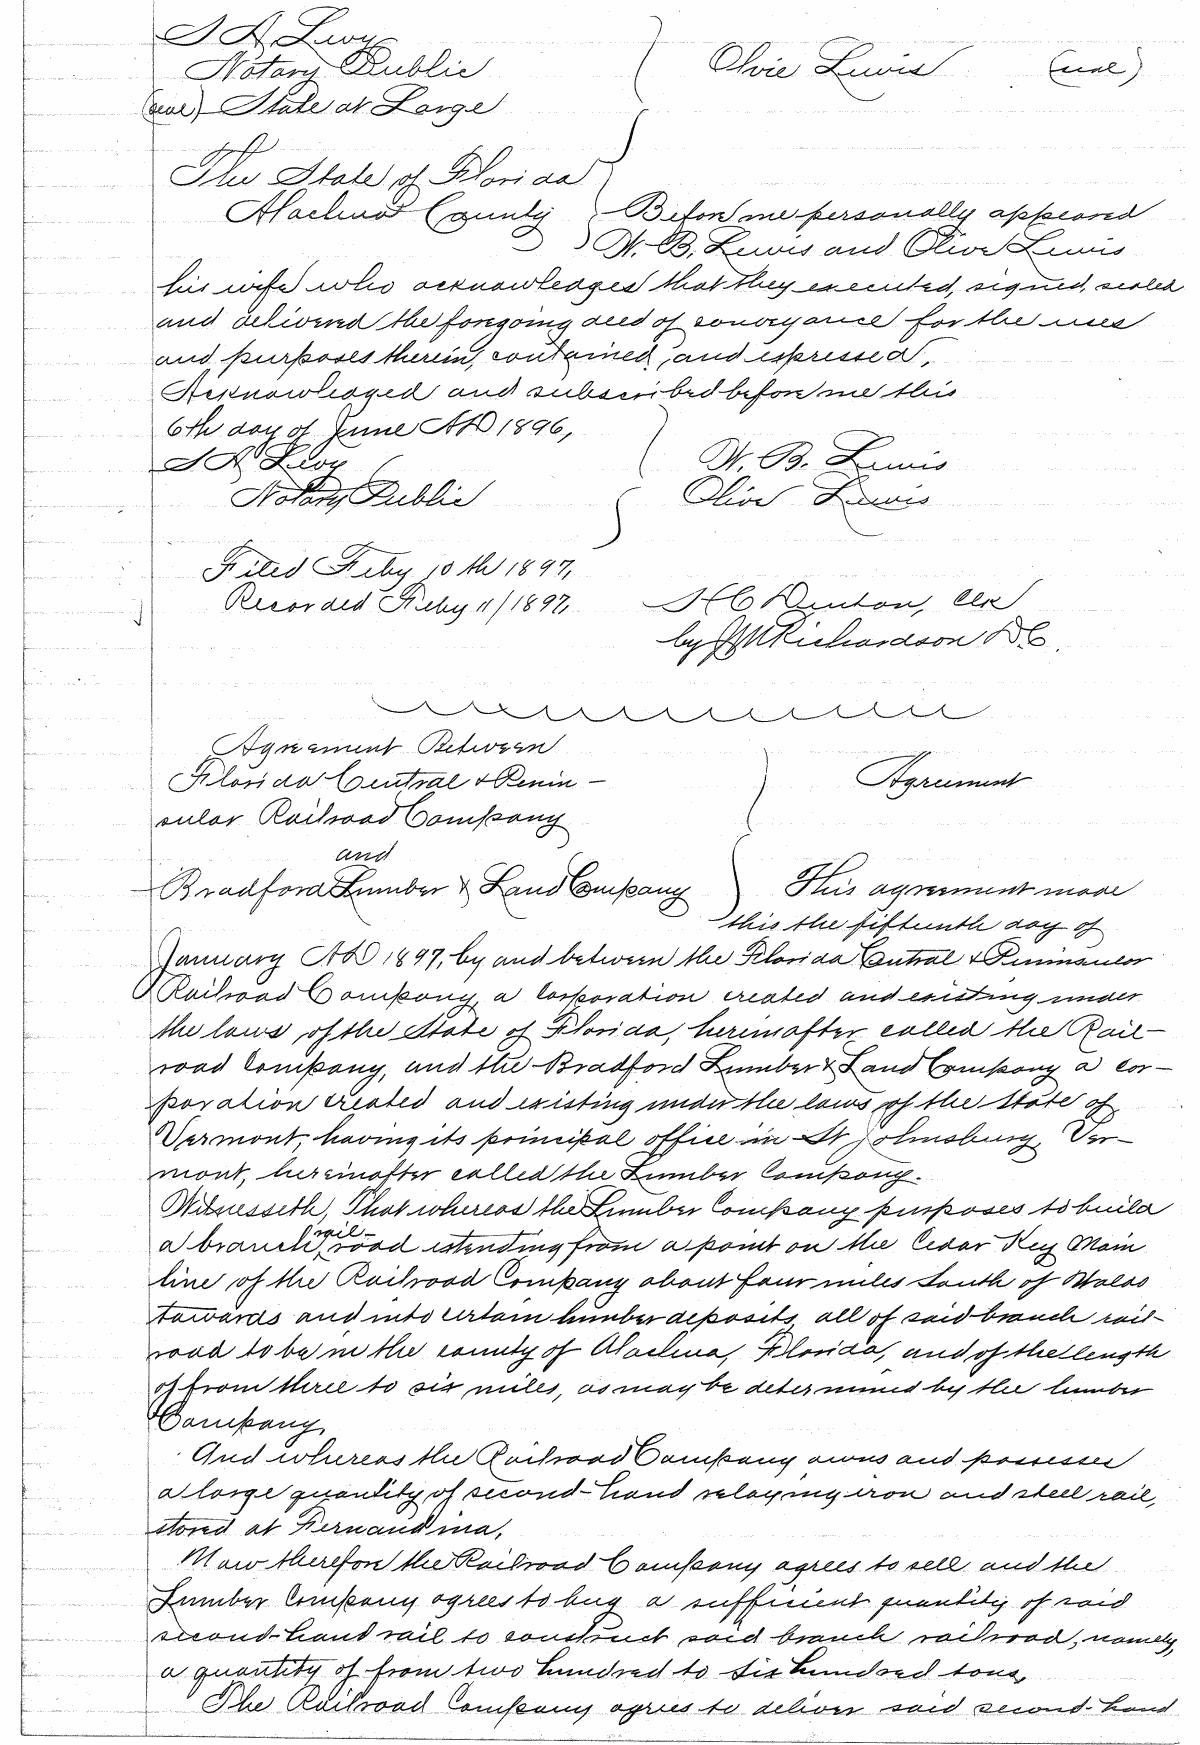 I A Levy
Notary Public Olvie Lewis (seal)
(seal) State at Large
The State of Florida
Alachua County Before me personally appeared
W. B. Lewis and Olive Lewis
his wife who acknowledges that they executed, signed, sealed
and delivered the foregoing deed of conveyance for the uses
and purposes therein, contained, and expressed,
Acknowledged and subscribed before me this
6th day of June AD 1896,
I A Levy W. B. Lewis
Notary Public Olive Lewis
Filed Feby 10th 1897,
Recorded Feby 11/1897, H C Denton, Clk
by Richardson D C.
Agreement Between
Florida Central & Penin- Agreement
sular Railroad Company
and
Bradford Lumber & Land Company This agreement made
this the fifteenth day of
January AD 1897, by and between the Florida Central & Peninsular
Railroad Company, a Corporation created and existing under
the laws of the State of Florida, hereinafter called the Rail-
road Company, and the Bradford Lumber & Land Company a cor-
poration created and existing under the laws of the State of
Vermont, having its principal office in St Johnsburg, Ver-
mont, hereinafter called the Lumber Company.
Witnesseth, That whereas the Lumber Company purposes to build
a branch rail-road extending from a point on the Cedar Key Main
line of the Railroad Company about four miles South of Waldo
towards and into certain lumber deposits, all of said branch rail-
road to be in the county of Alachua, Florida, and of the length
of from three to six miles, as may be determined by the lumber
Company,
And whereas the Railroad Company owns and possesses
a large quantity of second-hand relaying iron and steel rail,
stored at Fernandina,
Now therefore the Railroad Company agrees to sell and the
Lumber Company agrees to buy a sufficient quantity of said
second-hand rail to construct said branch railroad, namely,
a quantity of from two hundred to six hundred tons,
The Railroad Company agrees to deliver said second-hand